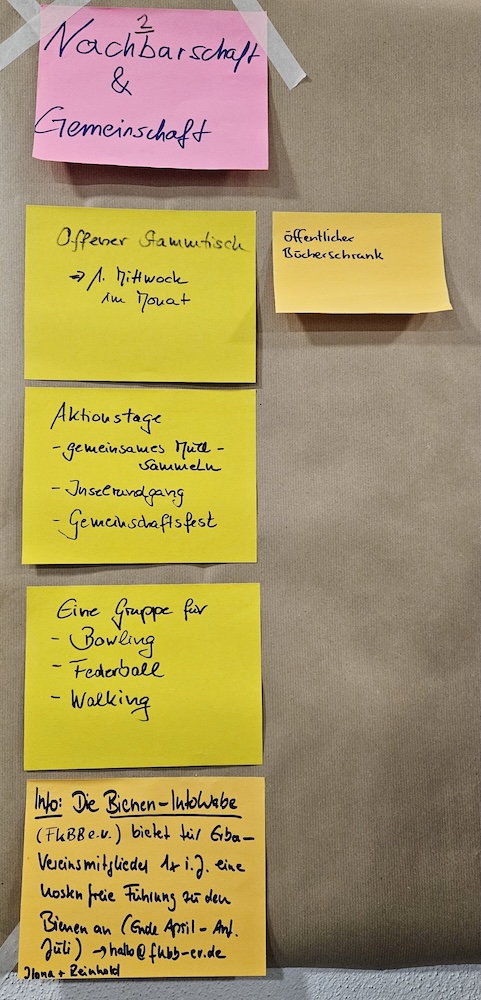 2
Nachbarschaft
&
Gemeinschaft
Offener Stammtisch
→ 1. Mittwoch
im Monat
öffentlicher
Bücherschrank
Aktionstage
- gemeinsames Müll-
sammeln
- Inselrundgang
- Gemeinschaftsfest
Eine Gruppe für
- Bowling
- Federball
- Walking
Info: Die Bienen-InfoWabe
(FkBB e.V.) bietet für Erba-
Vereinsmitglieder 1x i.J. eine
kostenfreie Führung zu den
Bienen an (Ende April - Anf.
Juli) → hallo@fkbb-ev.de
Ilona + Reinhold